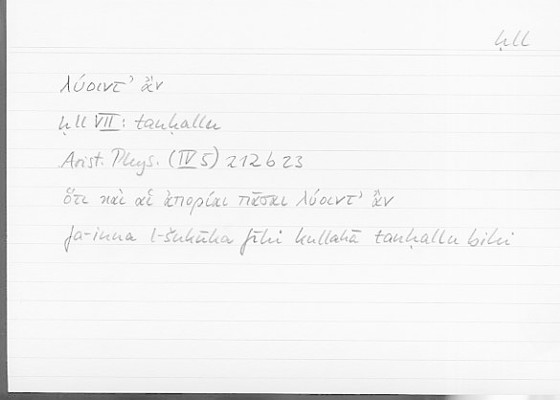 ḥll
λύοιντ’ ἄν
ḥll VII: tanḥallu
Arist. Phys. (IV 5) 212b23
ὅτι καὶ αἱ ἀπορίαι πᾶσαι λύοιντ’ ἄν
fa-inna l-šukūka fīhi kullahā tanḥallu bihi